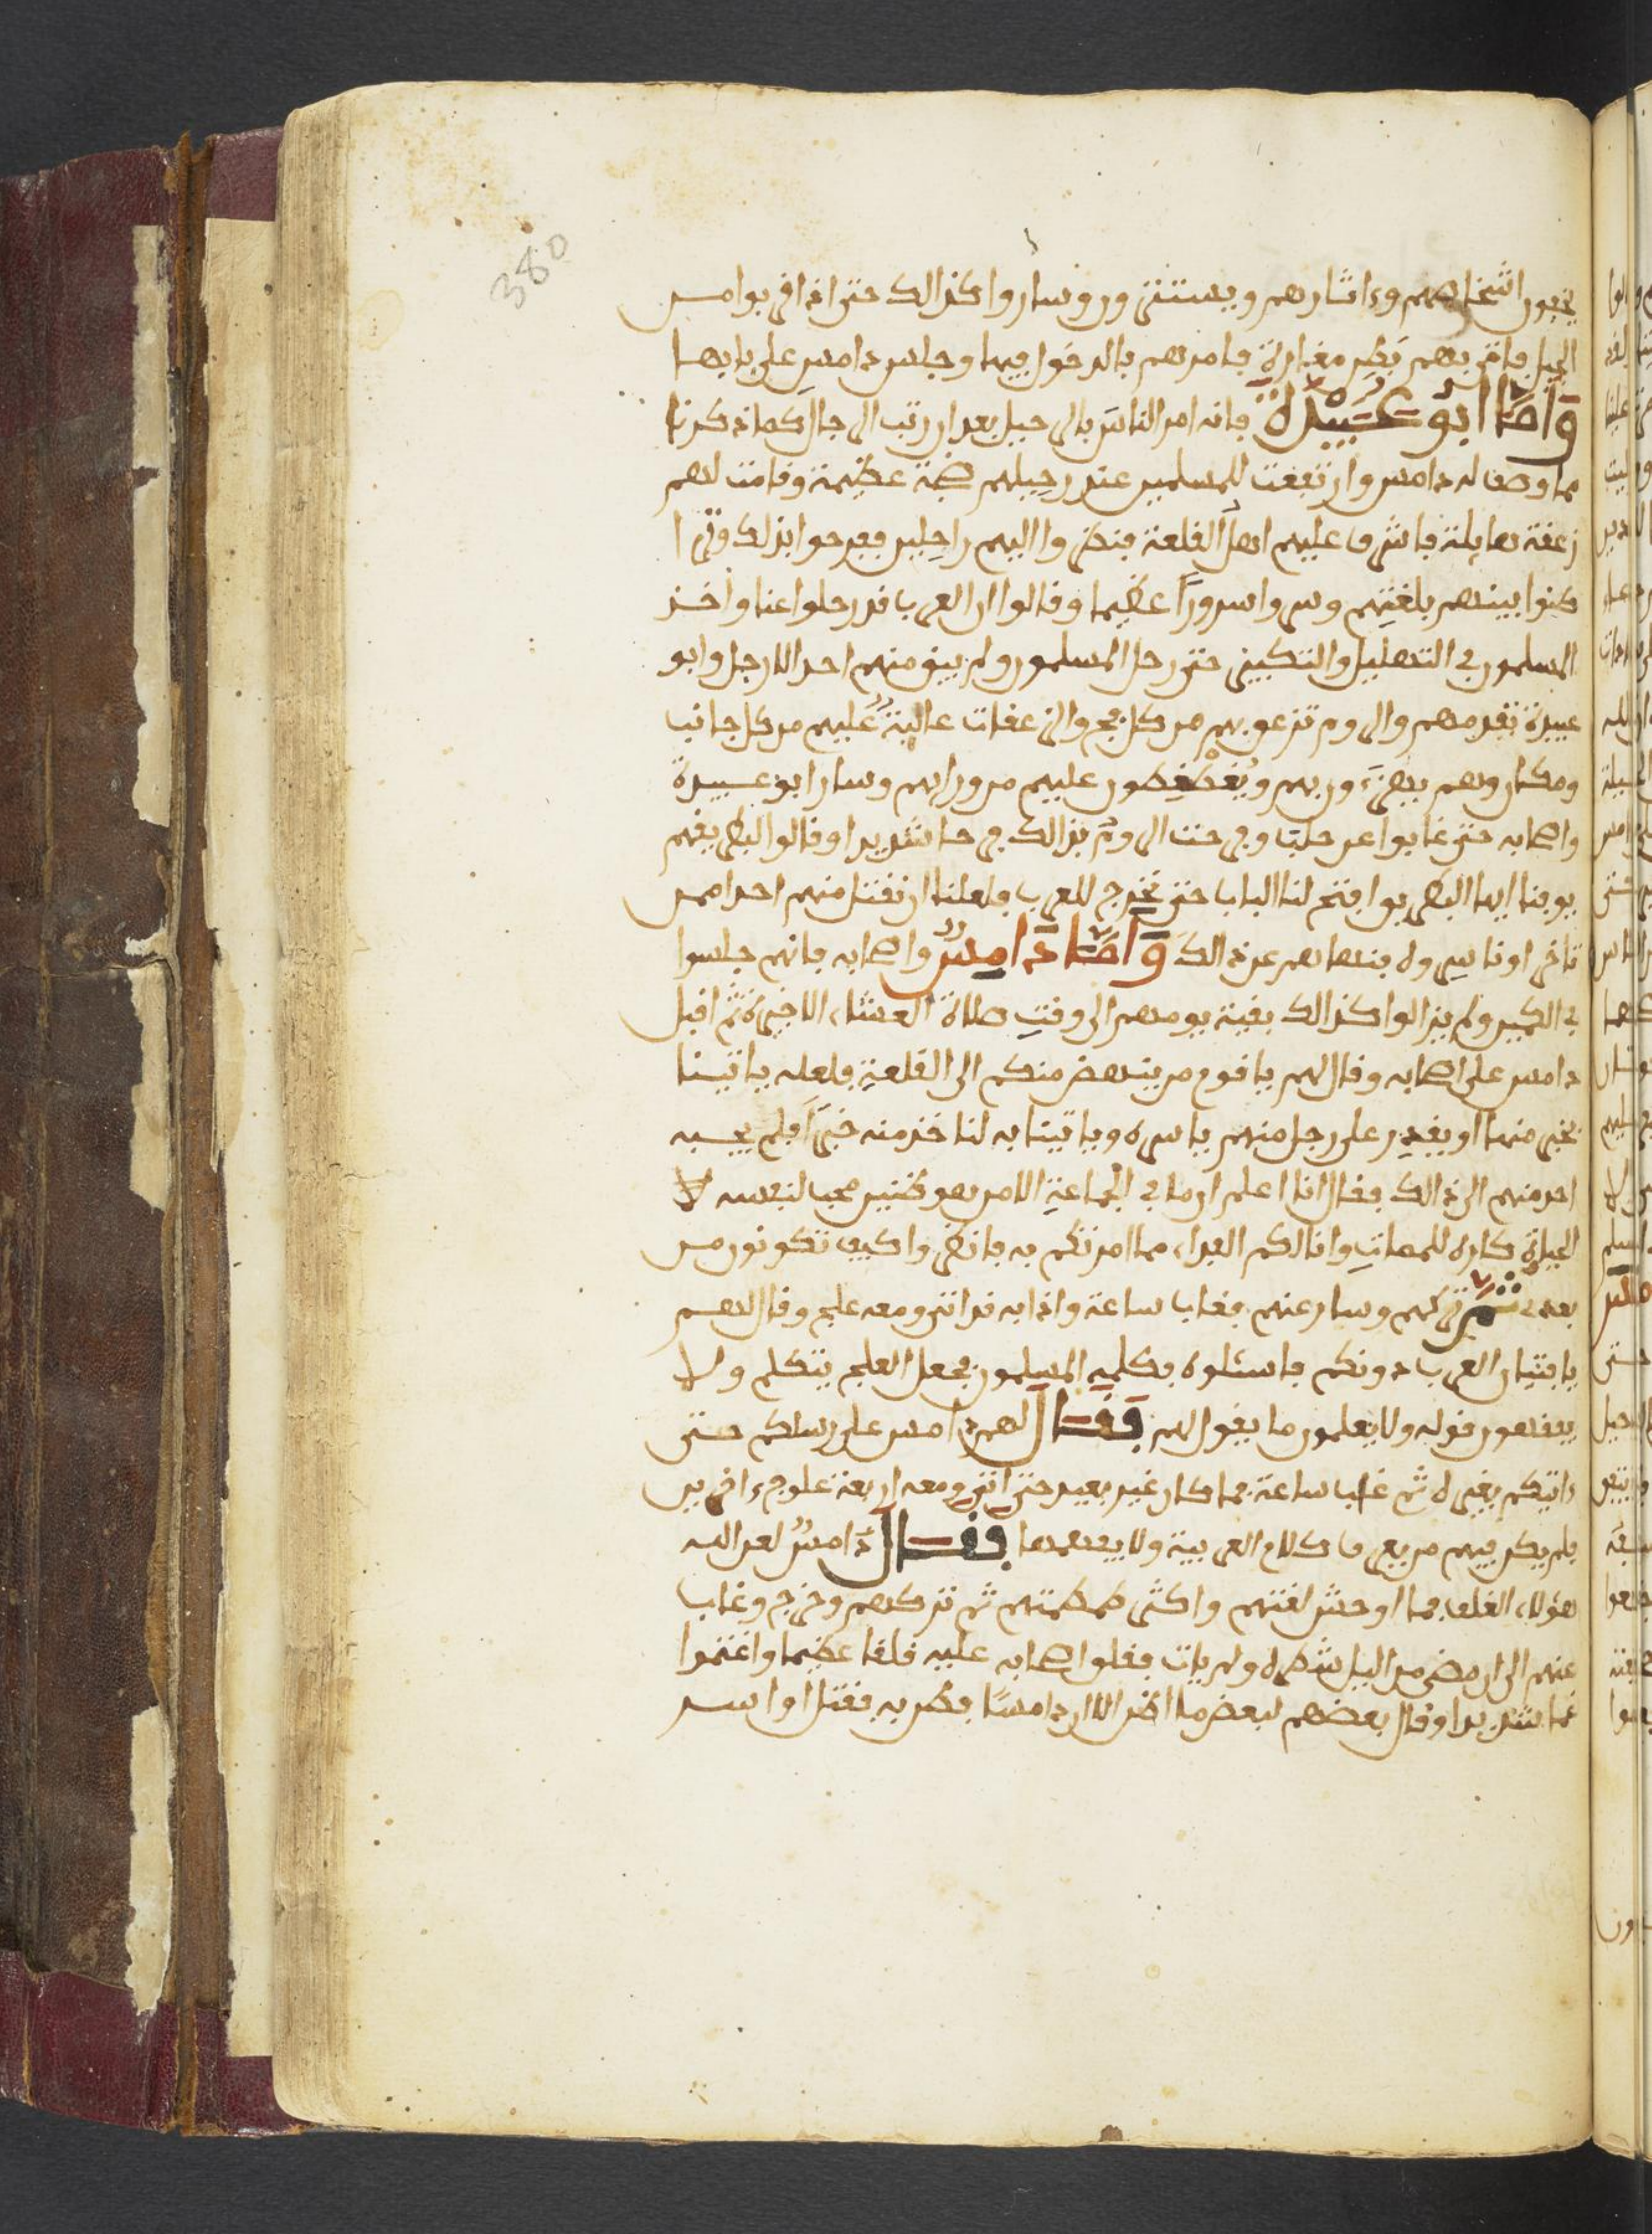 380
يخفون اشخاصهم وءاثارهم ويستترون وساروا كذالك حتى اذا قربوا من
الجبل فاتى بهم نحو مغارة فامرهم بالدخول فيها وجلس دامس على بابها
وَامَّا ابُو عُبَيْدَةَ فانه امر الناس بالرحيل بعد ان رتب الرجال كما ذكرنا
مما وصف له دامس وارتفعت للمسلمين عند رحيلهم ضجة عظيمة وقامت لهم
زعقة هايلة فاشرف عليهم اهل القلعة فنظروا اليهم راحلين ففرحوا بذلك وترا
كنوا بينهم بلغتهم وسروا سرورا عظيما وقالوا ان العرب قد رحلوا عنا واخذ
المسلمون في التهليل والتكبير حتى رحل المسلمون ولم يبق منهم احد الا رحل وابو
عبيدة تقدمهم والروم تزعق بهم من كل فج والزعقات عالية عليهم من كل جانب
وهم ويغطغطون عليهم من ورايهم وسار ابو عبيدة
واصحابه حتى غابوا عن حلب وفرحت الروم بذالك فرحا شديدا وقالوا لبطريقهم
يوقنا ايها البطريق افتح لنا الباب حتى نخرج للعرب فلعلنا ان نقتل منهم احدا ممن
تاخر او ناسره فنهاهم عن ذالك وَامَّا دَامِسٌ واصحابه فانهم جلسوا
في الكمين ولم يزالوا كذالك بقية يومهم الى وقت صلاة العشاء الاخيرة ثم اقبل
دامس على اصحابه وقال لهم يا قوم من ينهض منكم الى القلعة فلعله ياتينا
بخبر منها او يقدر على رجل منهم ياسره وياتينا به لناخذ منه خبرا فلم يجبه
احد منهم الى ذالك فقال انا اعلم ان ما في الجماعة الا من هو محبا لنفسه لا
الحياة كاره للممات وانا لكم الفداء مما امرتكم به فانظروا كيف تكونون من
بعدي ثُمَّ تركهم وسار عنهم فغاب ساعة واذا به قد اتى ومعه علج وقال لهم
يا فتيان العرب دونكم فاسئلوه فكلمه المسلمون فجعل العلج يتكلم ولا
يفقهون قوله ولا يعلمون ما يقول لهم فَقَالَ لهم دامس على رسلكم حتى
ءاتيكم بغيره ثم غاب ساعة فما كان غير بعيد حتى اتى ومعه اربعة علوج ءاخرين
فلم يكن فيهم من يعرف كلام العربية ولا يفهمها فَقَالَ دَامِسٌ لعن الله
هؤلاء الغلف فما اوحش لغتهم واكثر طمطمتهم ثم تركهم وخرج وغاب
عنهم الى ان مضى من اليل شطره ولم يات فقلق اصحابه عليه قلقا عظيما واغتموا
غما شديدا وقال بعضهم لبعض ما اظن الا ان دامسا فطن به فقتل او اسر